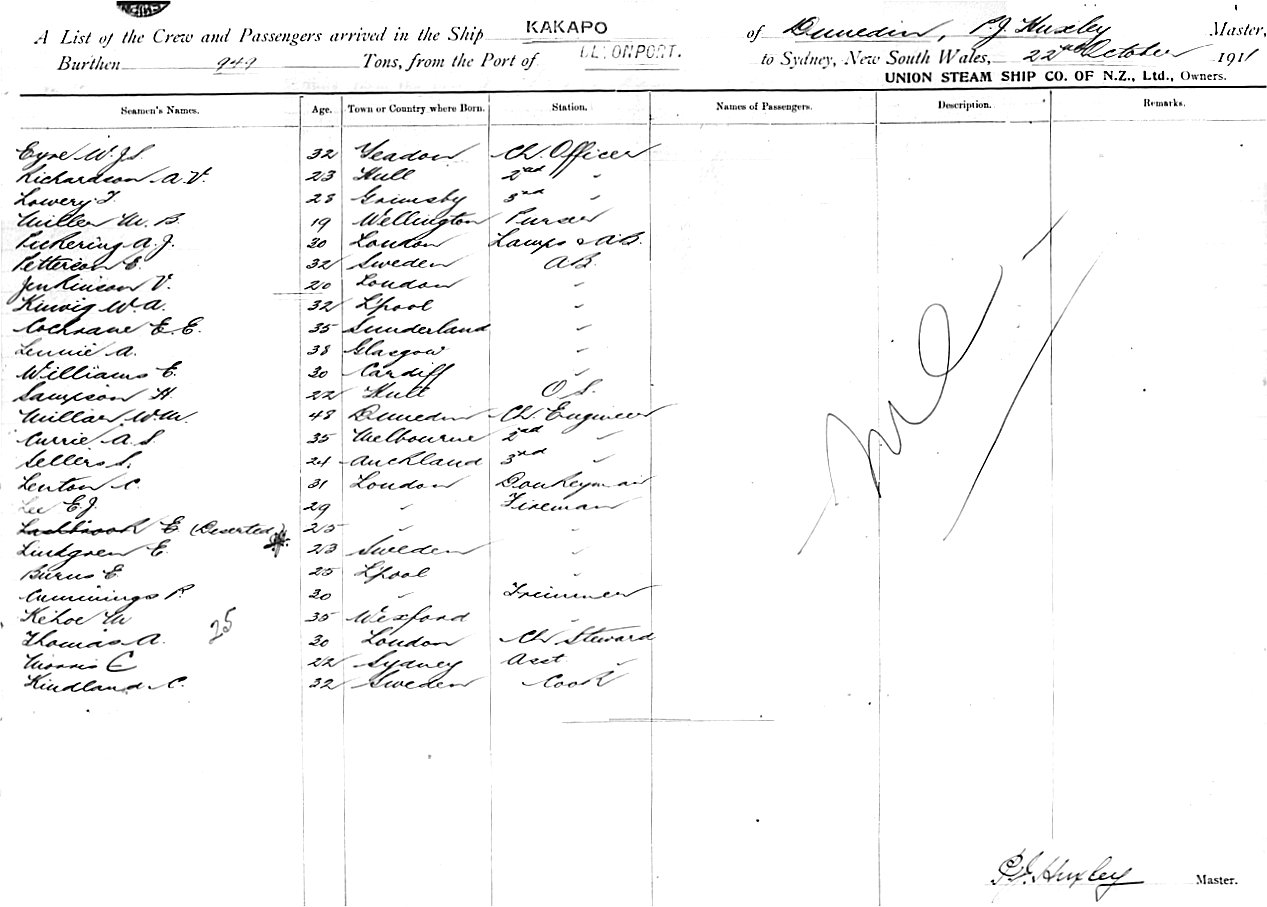 A List of the Crew and Passengers arrived in the Ship KAKAPO of Dunedin, P.J. Huxley Master,
Burthen 949 Tons, from the Port of to Sydney, New South Wales, 22nd October 1911
UNION STEAM SHIP CO. OF N.Z., Ltd., Owners.
Seamen's Names. Age. Town or Country where Born. Station. Names of Passengers. Description. Remarks.
Eyre W.J.S. 32 Yeadon Ch. Officer
Richardson A.V. 23 Hull 2nd "
Lowery T. 28 Grimsby 3rd "
Miller M.B 19 Wellington Purser
Pickering A.J. 30 London Lamps & A.B.
Petterson E. 32 Sweden A.B.
Jenkinson V. 20 London "
Kinvig W.A. 32 L'pool "
Cochrane E.E. 35 Sunderland "
Lennie A. 38 Glasgow "
Williams E. 30 Cardiff "
Sampson H. 22 Hull O.S.
Millar W.M. 48 Dunedin Ch. Engineer
Currie A.S. 35 Melbourne 2nd "
Sellers S. 24 Auckland 3rd "
Lenton C. 31 London Donkeyman
Lee E.J. 29 " Fireman
Lashbrook E (Deserted) 25 " "
Lindgren E. 23 Sweden "
Burns E. 25 Lpool "
Cummings P. 30 " Trimmer
Kehoe M 35 Wexford "
Thomas A. 30 London Ch Steward
Morris C 22 Sydney Asst "
Kindland C. 32 Sweden Cook
25
Nil
P.J. Huxley Master.